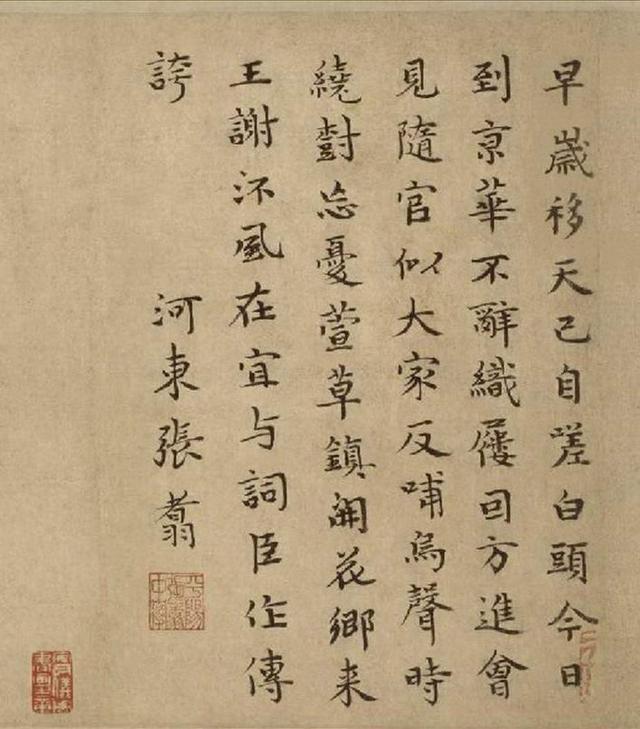 早歲移天已自嗟白頭今日
到京華不辭織屨同方進會
見隨官似大家反哺烏聲時
繞樹忘憂萱草鎮開花鄉来
王謝流風在宜与詞臣作傳
誇 河東張翥